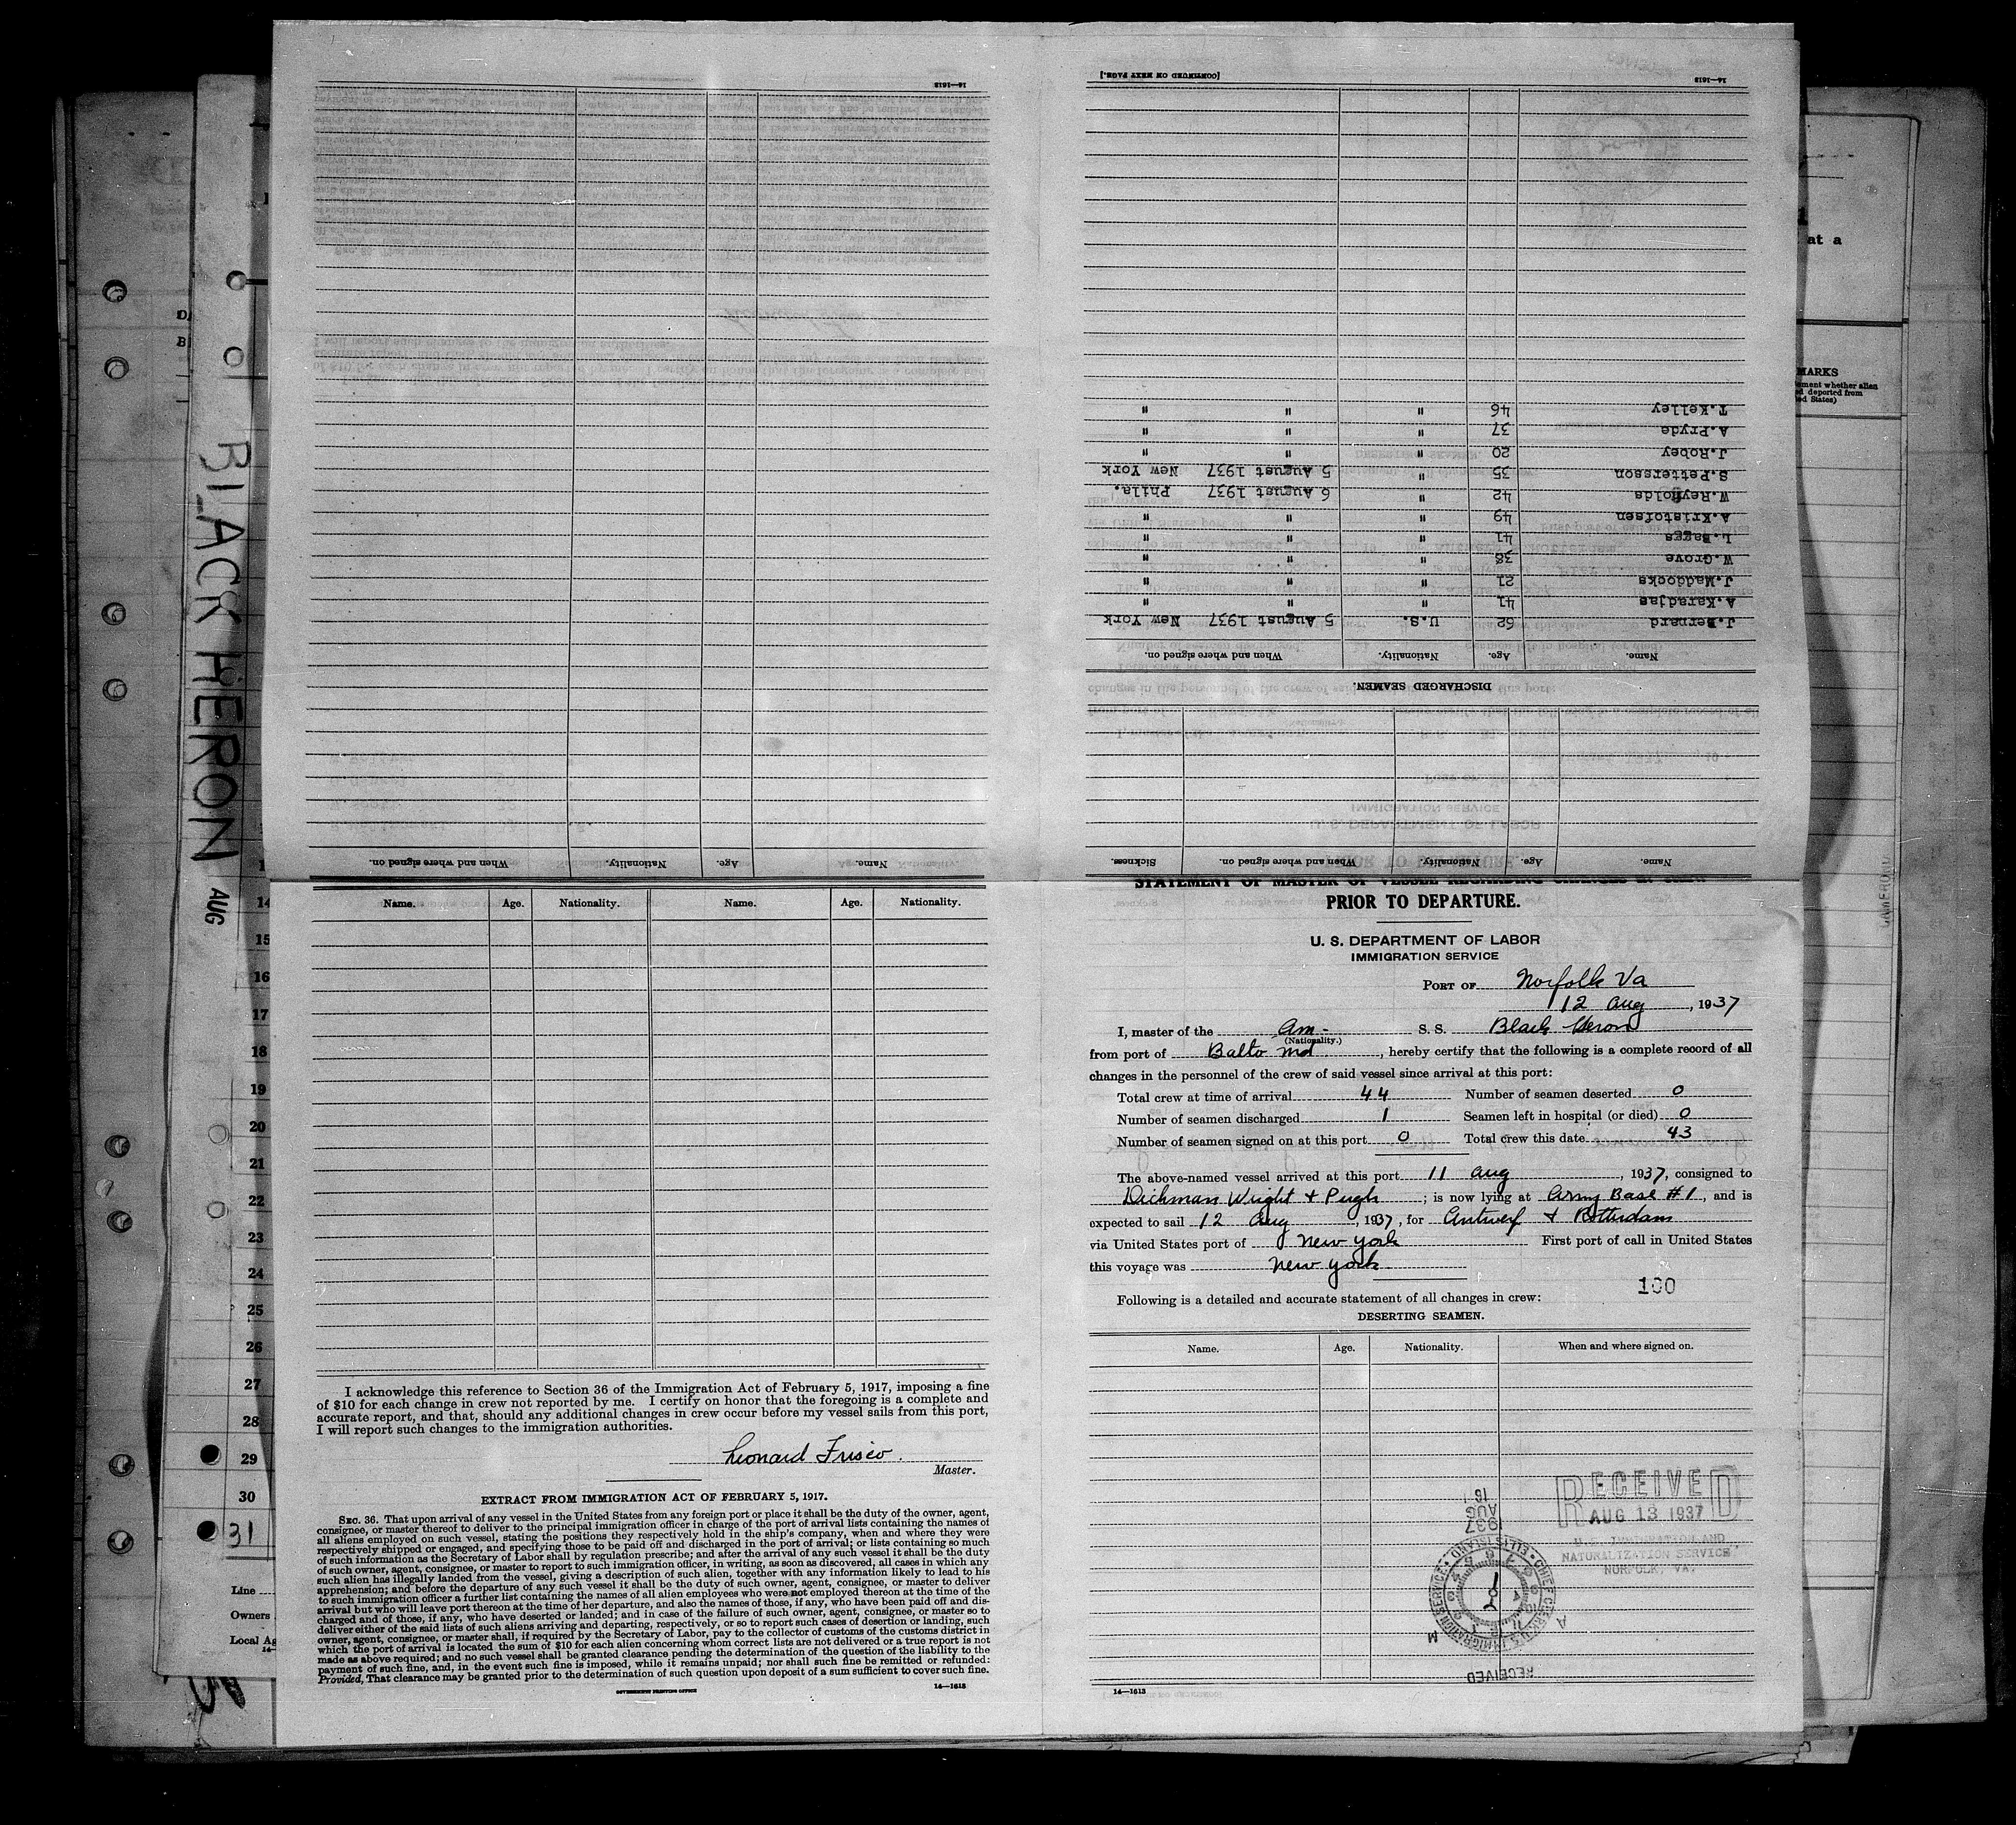 BLACK HERON
AUG
14
15
16
17
18
19
20
21
22
23
24
25
26
27
28
29
30
31
Line
Owners
Local Ag
at a
MARKS
[CONTINUED ON NEXT PAGE.]
14—1613
14—1613
T.Kelley 46 " " "
A.Pryde 37 " " "
J.Robey 20 " " "
S.Pettersson 35 " 5 August 1937 New York
W.Reynolds 42 " 6 August 1937 Phila.
A.Kristofsen 49 " " "
L.Baggs 41 " " "
W.Grove 38 " " "
J.Maddocks 21 " " "
A.Karadjas 41 " " "
J.Bernard 62 U.S. 5 August 1937 New York
Name. Age. Nationality. When and where signed on.
DISCHARGED SEAMEN.
Name. Age. Nationality. When and where signed on.
Name. Age. Nationality. When and where signed on. Sickness.
Name. Age. Nationality. Name. Age. Nationality.
I acknowledge this reference to Section 36 of the Immigration Act of February 5, 1917, imposing a fine
of $10 for each change in crew not reported by me. I certify on honor that the foregoing is a complete and
accurate report, and that, should any additional changes in crew occur before my vessel sails from this port,
I will report such changes to the immigration authorities.
Leonard Frisco.
Master.
EXTRACT FROM IMMIGRATION ACT OF FEBRUARY 5, 1917.
SEC. 36. That upon arrival of any vessel in the United States from any foreign port or place it shall be the duty of the owner, agent,
consignee, or master thereof to deliver to the principal immigration officer in charge of the port of arrival lists containing the names of
all aliens employed on such vessel, stating the positions they respectively hold in the ship's company, when and where they were
respectively shipped or engaged, and specifying those to be paid off and discharged in the port of arrival; or lists containing so much
of such information as the Secretary of Labor shall by regulation prescribe; and after the arrival of any such vessel it shall be the duty
of such owner, agent, consignee, or master to report to such immigration officer, in writing, as soon as discovered, all cases in which any
such alien has illegally landed from the vessel, giving a description of such alien, together with any information likely to lead to his
apprehension; and before the departure of any such vessel it shall be the duty of such owner, agent, consignee, or master to deliver
to such immigration officer a further list containing the names of all alien employees who were not employed thereon at the time of the
arrival but who will leave port thereon at the time of her departure, and also the names of those, if any, who have been paid off and dis-
charged and of those, if any, who have deserted or landed; and in case of the failure of such owner, agent, consignee, or master so to
deliver either of the said lists of such aliens arriving and departing, respectively, or so to report such cases of desertion or landing, such
owner, agent, consignee, or master shall, if required by the Secretary of Labor, pay to the collector of customs of the customs district in
which the port of arrival is located the sum of $10 for each alien concerning whom correct lists are not delivered or a true report is not
made as above required; and no such vessel shall be granted clearance pending the determination of the question of the liability to the
payment of such fine, and, in the event such fine is imposed, while it remains unpaid; nor shall such fine be remitted or refunded:
Provided, That clearance may be granted prior to the determination of such question upon deposit of a sum sufficient to cover such fine.
GOVERNMENT PRINTING OFFICE
14—1613
PRIOR TO DEPARTURE.
U. S. DEPARTMENT OF LABOR
IMMIGRATION SERVICE
PORT OF Norfolk Va
12 Aug, 1937
I, master of the Am- S. S. Black Heron
(Nationality.)
from port of Balto Md, hereby certify that the following is a complete record of all
changes in the personnel of the crew of said vessel since arrival at this port:
Total crew at time of arrival 44 Number of seamen deserted 0
Number of seamen discharged 1 Seamen left in hospital (or died) 0
Number of seamen signed on at this port 0 Total crew this date 43
The above-named vessel arrived at this port 11 Aug, 1937, consigned to
Dichman Wright & Pugh; is now lying at Army Base #1, and is
expected to sail 12 Aug, 1937, for Antwerp & Rotterdam
via United States port of New York First port of call in United States
this voyage was New York
100
Following is a detailed and accurate statement of all changes in crew:
DESERTING SEAMEN.
Name. Age. Nationality. When and where signed on.
RECEIVED
AUG 13 1937
U.S. IMMIGRATION AND
NATURALIZATION SERVICE
NORFOLK, VA.
1937
AUG
16
RECEIVED
14—1613